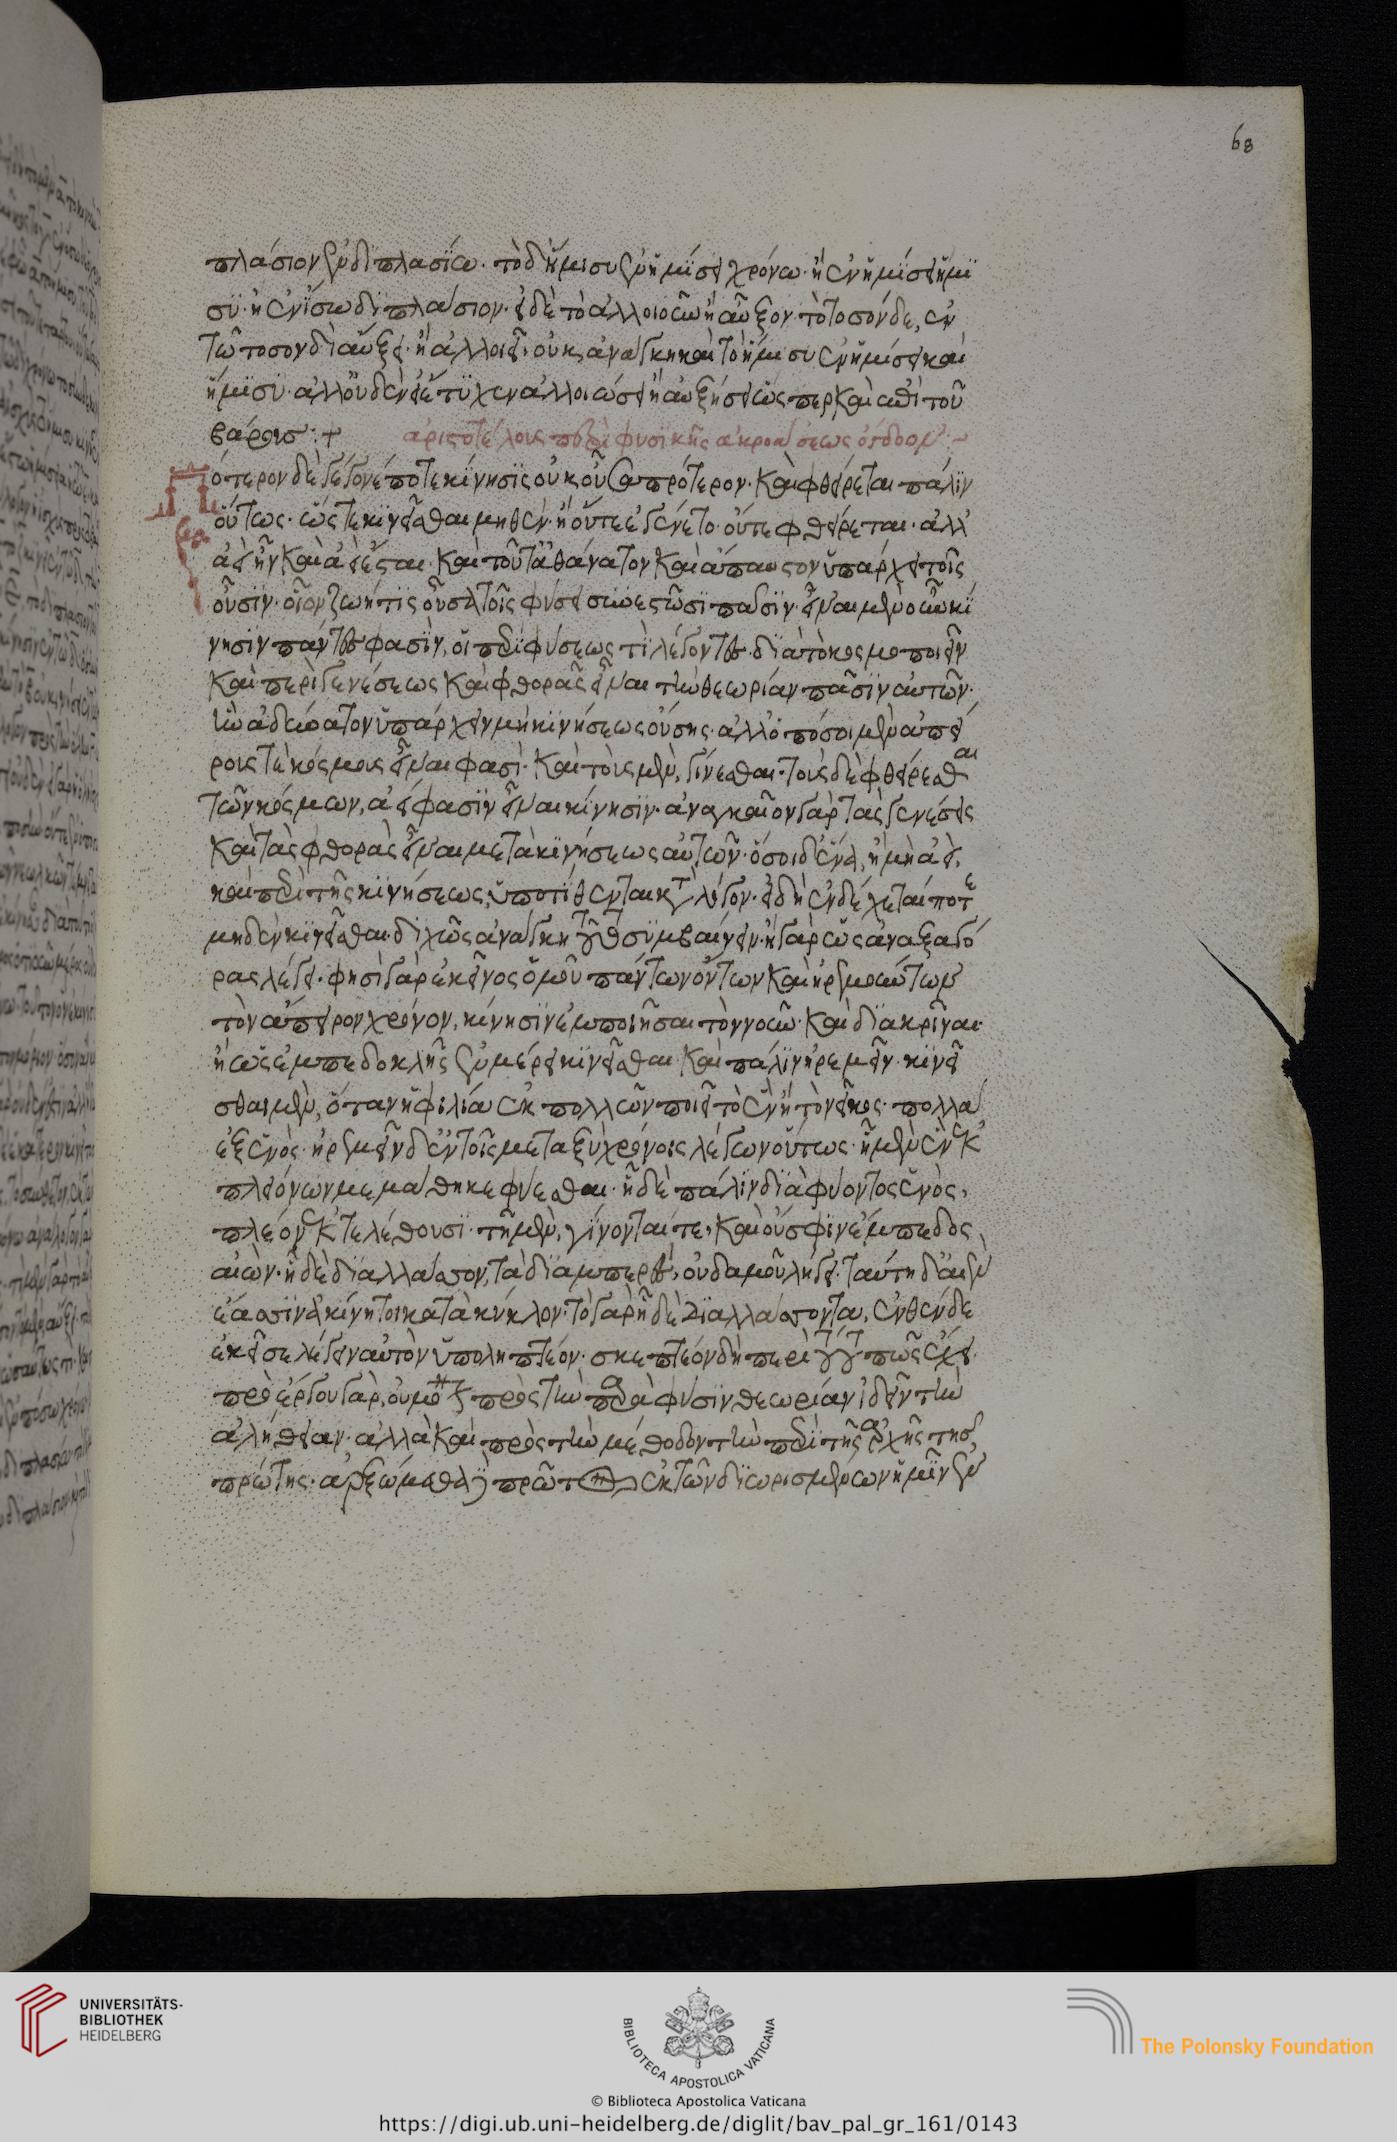 πλάσιον ἐν διπλασίω· τὸ δ' ἥμισυ ἐν ἡμίσει χρόνω· ἢ ἐν ἡμίσει ἥμι
συ· ἢ ἐν ἴσω διπλάσιον· εἰ δὲ τὸ ἀλλοιοῦν ἢ αὖξον· τὸ τοσόνδε, ἐν
τῶ τοσονδὶ αὔξει· ἢ ἀλλοιεῖ· οὐκ ἀνάγκη καὶ τὸ ἥμισυ ἐν ἡμίσει καὶ
ἥμισυ· ἀλλ' οὐδὲν εἰ ἔτυχεν ἀλλοιώσει ἢ αὐξήσει ὥσπερ καὶ ἐπὶ τοῦ
βάρους :+ ἀριστοτέλους περὶ φυσικῆς ἀκροάσεως ὄγδοον :~
Πότερον δὲ γέγονέ ποτε κίνησις οὐκ οὖσα πρότερον· καὶ φθείρεται πάλιν
οὕτως· ὥστε κινεῖσθαι μηθέν· ἢ οὔτε ἐγένετο· οὔτε φθείρεται· ἀλλ'
ἀεὶ ἦν καὶ ἀεὶ ἔσται· καὶ τοῦτ' ἀθάνατον καὶ ἄπαυστον ὑπάρχει τοῖς
οὖσιν· οἷον ζωή τις οὖσα τοῖς φύσει συνεστῶσι πᾶσιν· εἶναι μὲν οὖν κί
νησιν πάντες φασὶν, οἱ περὶ φύσεώς τι λέγοντες· διὰ τὸ κοσμοποιεῖν
καὶ περὶ γενέσεως καὶ φθορᾶς εἶναι τὴν θεωρίαν πᾶσιν αὐτῶν·
ἣν ἀδύνατον ὑπάρχειν μὴ κινήσεως οὔσης· ἀλλ' ὁπόσοι μὲν ἀπεί
ρους τὲ κόσμους εἶναι φασὶ· καὶ τοὺς μὲν, γίνεσθαι· τοὺς δὲ φθείρεσθαι
τῶν κόσμων, ἀεί φασιν εἶναι κίνησιν· ἀναγκαῖον γὰρ τὰς γενέσεις
καὶ τὰς φθορὰς εἶναι μετὰ κινήσεως αὐτῶν· ὅσοι δ' ἕνα, ἢ μὴ ἀεὶ,
καὶ περὶ τῆς κινήσεως, ὑποτίθενται κατὰ λόγον· εἰ δὴ ἐνδέχεταί ποτε
μηδὲν κινεῖσθαι· διχῶς ἀνάγκη τοῦτο συμβαίνειν· ἢ γὰρ ὡς ἀναξαγό
ρας λέγει· φησὶ γὰρ ἐκεῖνος ὁμοῦ πάντων ὄντων καὶ ἠρεμούντων
τὸν ἄπειρον χρόνον, κίνησιν ἐμποιῆσαι τὸν νοῦν· καὶ διακρῖναι·
ἢ ὡς ἐμπεδοκλῆς ἐν μέρει κινεῖσθαι καὶ πάλιν ἠρεμεῖν· κινεῖ
σθαι μὲν, ὅταν ἡ φιλία ἐκ πολλῶν ποιεῖ τὸ ἓν ἢ τὸ νεῖκος· πολλὰ
ἐξ ἑνὸς· ἠρεμεῖν δ' ἐν τοῖς μεταξὺ χρόνοις λέγων οὕτως· ἧ μὲν ἓν ἐκ
πλεόνων μεμάθηκε φύεσθαι· ἢ δὲ πάλιν διαφύοντος ἑνὸς,
πλέον' ἐκτελέθουσι· τῆ μὲν, γίνονταί τε, καὶ οὔ σφιν ἔμπεδος
αἰὼν· ἧ δὲ διαλλάσσοντα διαμπερὲς, οὐδαμοῦ λήγει· ταύτη δ' αἰὲν
ἔασσιν ἀκίνητοι κατὰ κύκλον· τὸ γὰρ ἧ δὲ διαλλάσσοντα, ἐνθένδε
ἐκεῖσε λέγειν αὐτὸν ὑποληπτέον· σκεπτέον δὴ περὶ τούτου πῶς ἔχει·
πρὸ ἔργου γὰρ, οὐ μόνον πρὸς τὴν περὶ φύσιν θεωρίαν ἰδεῖν τὴν
ἀλήθειαν· ἀλλὰ καὶ πρὸς τὴν μέθοδον τὴν περὶ τῆς ἀρχῆς τῆς
πρώτης· ἀρξώμεθα δὲ πρῶτον ἐκ τῶν διωρισμένων ἡμῖν ἐν
68
UNIVERSITÄTS-
BIBLIOTHEK
HEIDELBERG
BIBLIOTECA APOSTOLICA VATICANA
The Polonsky Foundation
© Biblioteca Apostolica Vaticana
https://digi.ub.uni-heidelberg.de/diglit/bav_pal_gr_161/0143